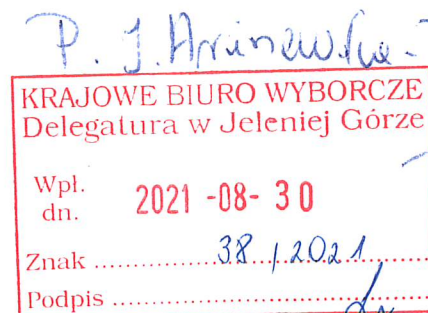 P. J.
KRAJOWE BIURO WYBORCZE
Delegatura w Jeleniej Górze
Wpł.
dn. 2021 -08- 30
Znak .......... 38 / 2021 ..........
Podpis ..........